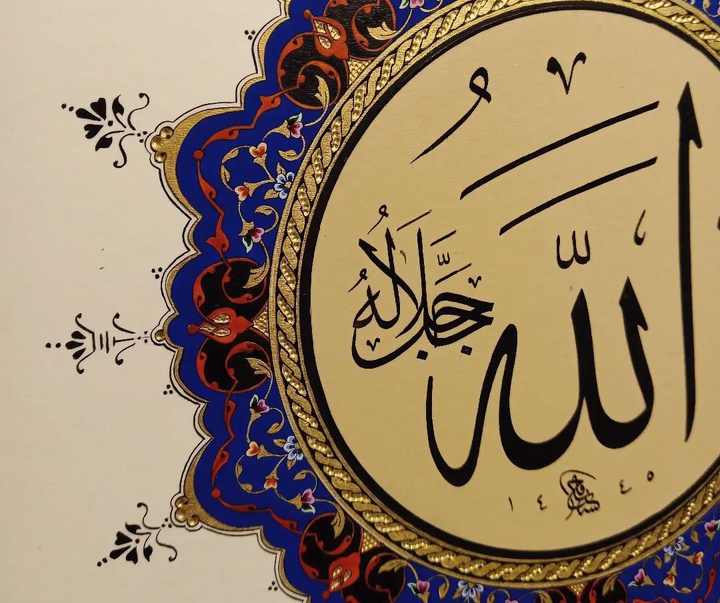 اللّٰه
جَلَّ جَلَالُهُ
١٤ ٤٥